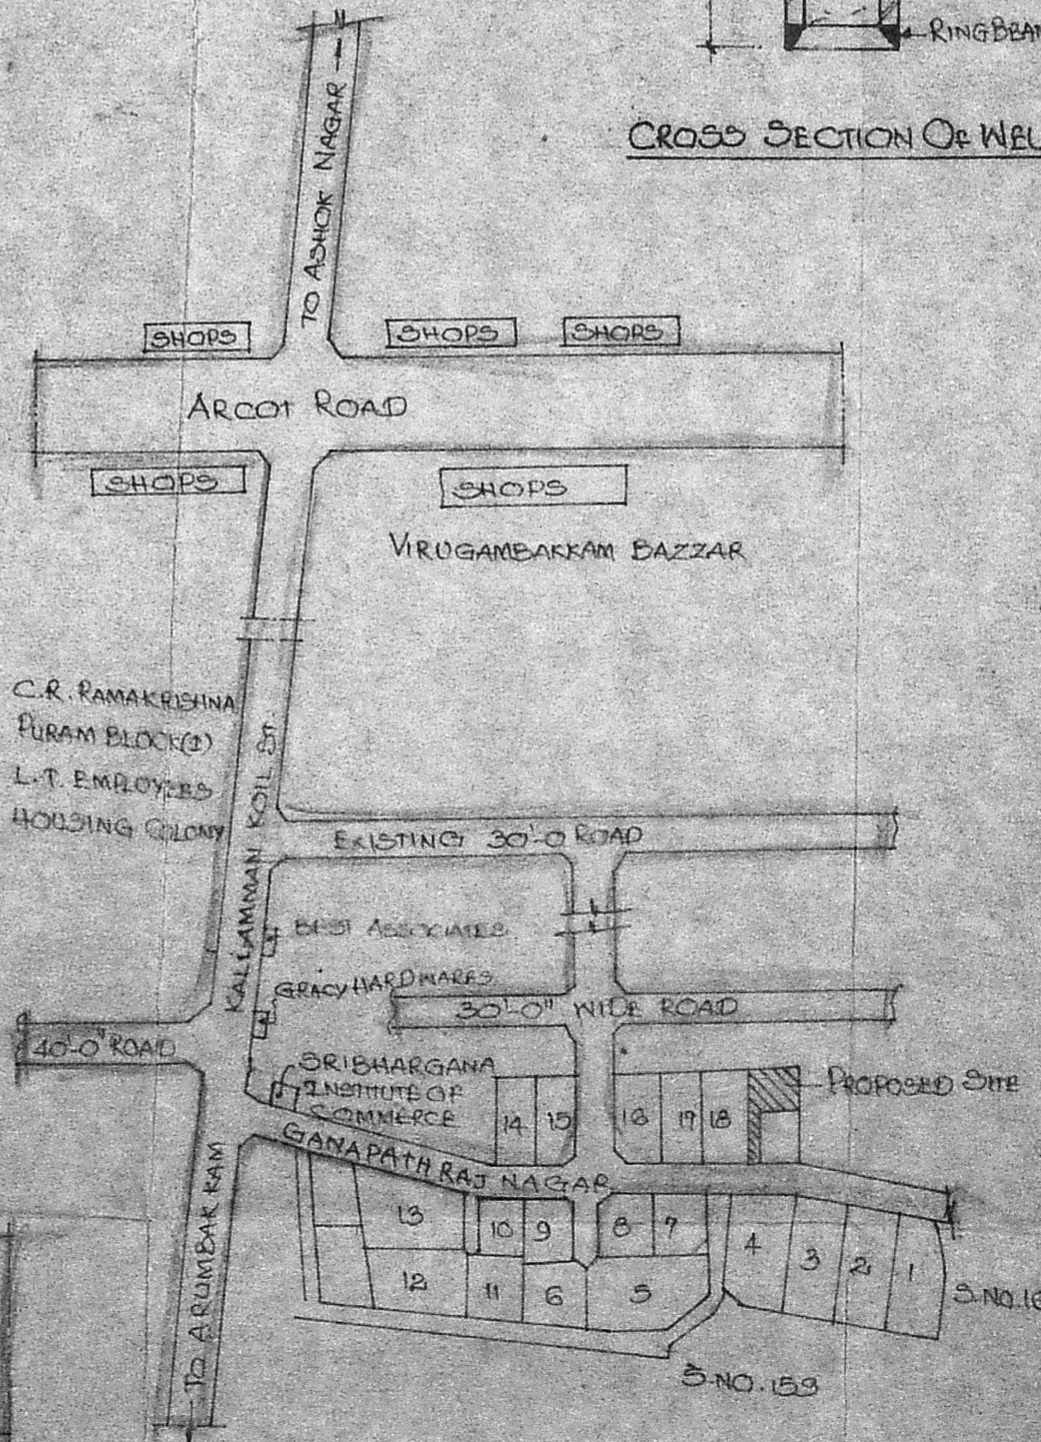 N
RING BEAM
CROSS SECTION OF WEL
TO ASHOK NAGAR
SHOPS
SHOPS
SHOPS
ARCOT ROAD
SHOPS
SHOPS
VIRUGAMBAKKAM BAZZAR
C.R. RAMAKRISHNA
PURAM BLOCK(I)
L.T. EMPLOYEES
HOUSING COLONY
KALIAMMAN KOIL ST.
EXISTING 30'-0 ROAD
BEST ASSOCIATES
GRACY HARDWARES
30'-0" WIDE ROAD
40'-0" ROAD
SRIBHARGANA
INSTITUTE OF
COMMERCE
14
15
16
17
18
PROPOSED SITE
GANAPATH RAJ NAGAR
13
10
9
8
7
4
3
2
1
12
11
6
5
S.NO.16
S.NO.159
TO ARUMBAKKAM